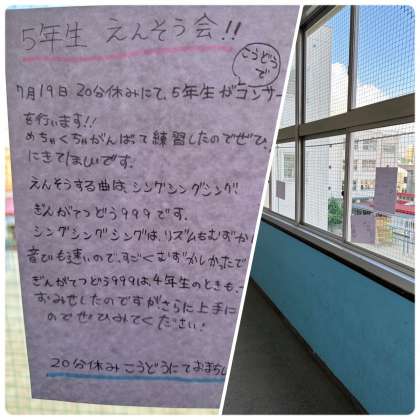 5年生 えんそう会!!
こうどうで
7月19日 20分休みにて、5年生がコンサー
を行います!!
めちゃくちゃがんばって練習したのでぜひ
にきてほしいです。
えんそうする曲は、シングシングシング
ぎんがてつどう999です。
シングシングシングは、リズムもむずか
音びも速いので、すごくむずかしかったで
ぎんがてつどう999は、4年生のときも、
ずみせしたのですがさらに上手に
のでぜひみてください!
20分休みこうどうにておまちし